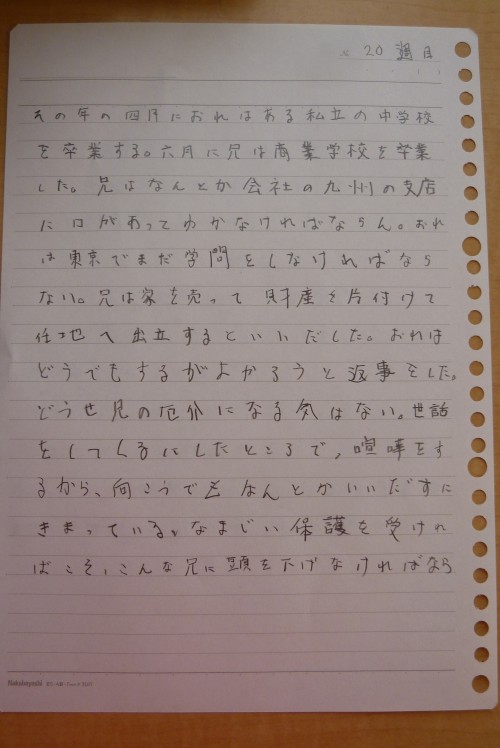 20週目
その年の四月におれはある私立の中学校
を卒業する。六月に兄は商業学校を卒業
した。兄はなんとか会社の九州の支店
に口があってゆかなければならん。おれ
は東京でまだ学問をしなければなら
ない。兄は家を売って財産を片付けて
任地へ出立するといいだした。おれは
どうでもするがよかろうと返事をした。
どうせ兄の厄介になる気はない。世話
をしてくるにしたところで、喧嘩をす
るから、向こうでもなんとかいいだすに
きまっている。なまじい保護を受けれ
ばこそ、こんな兄に頭を下げなければなら
Nakabayashi